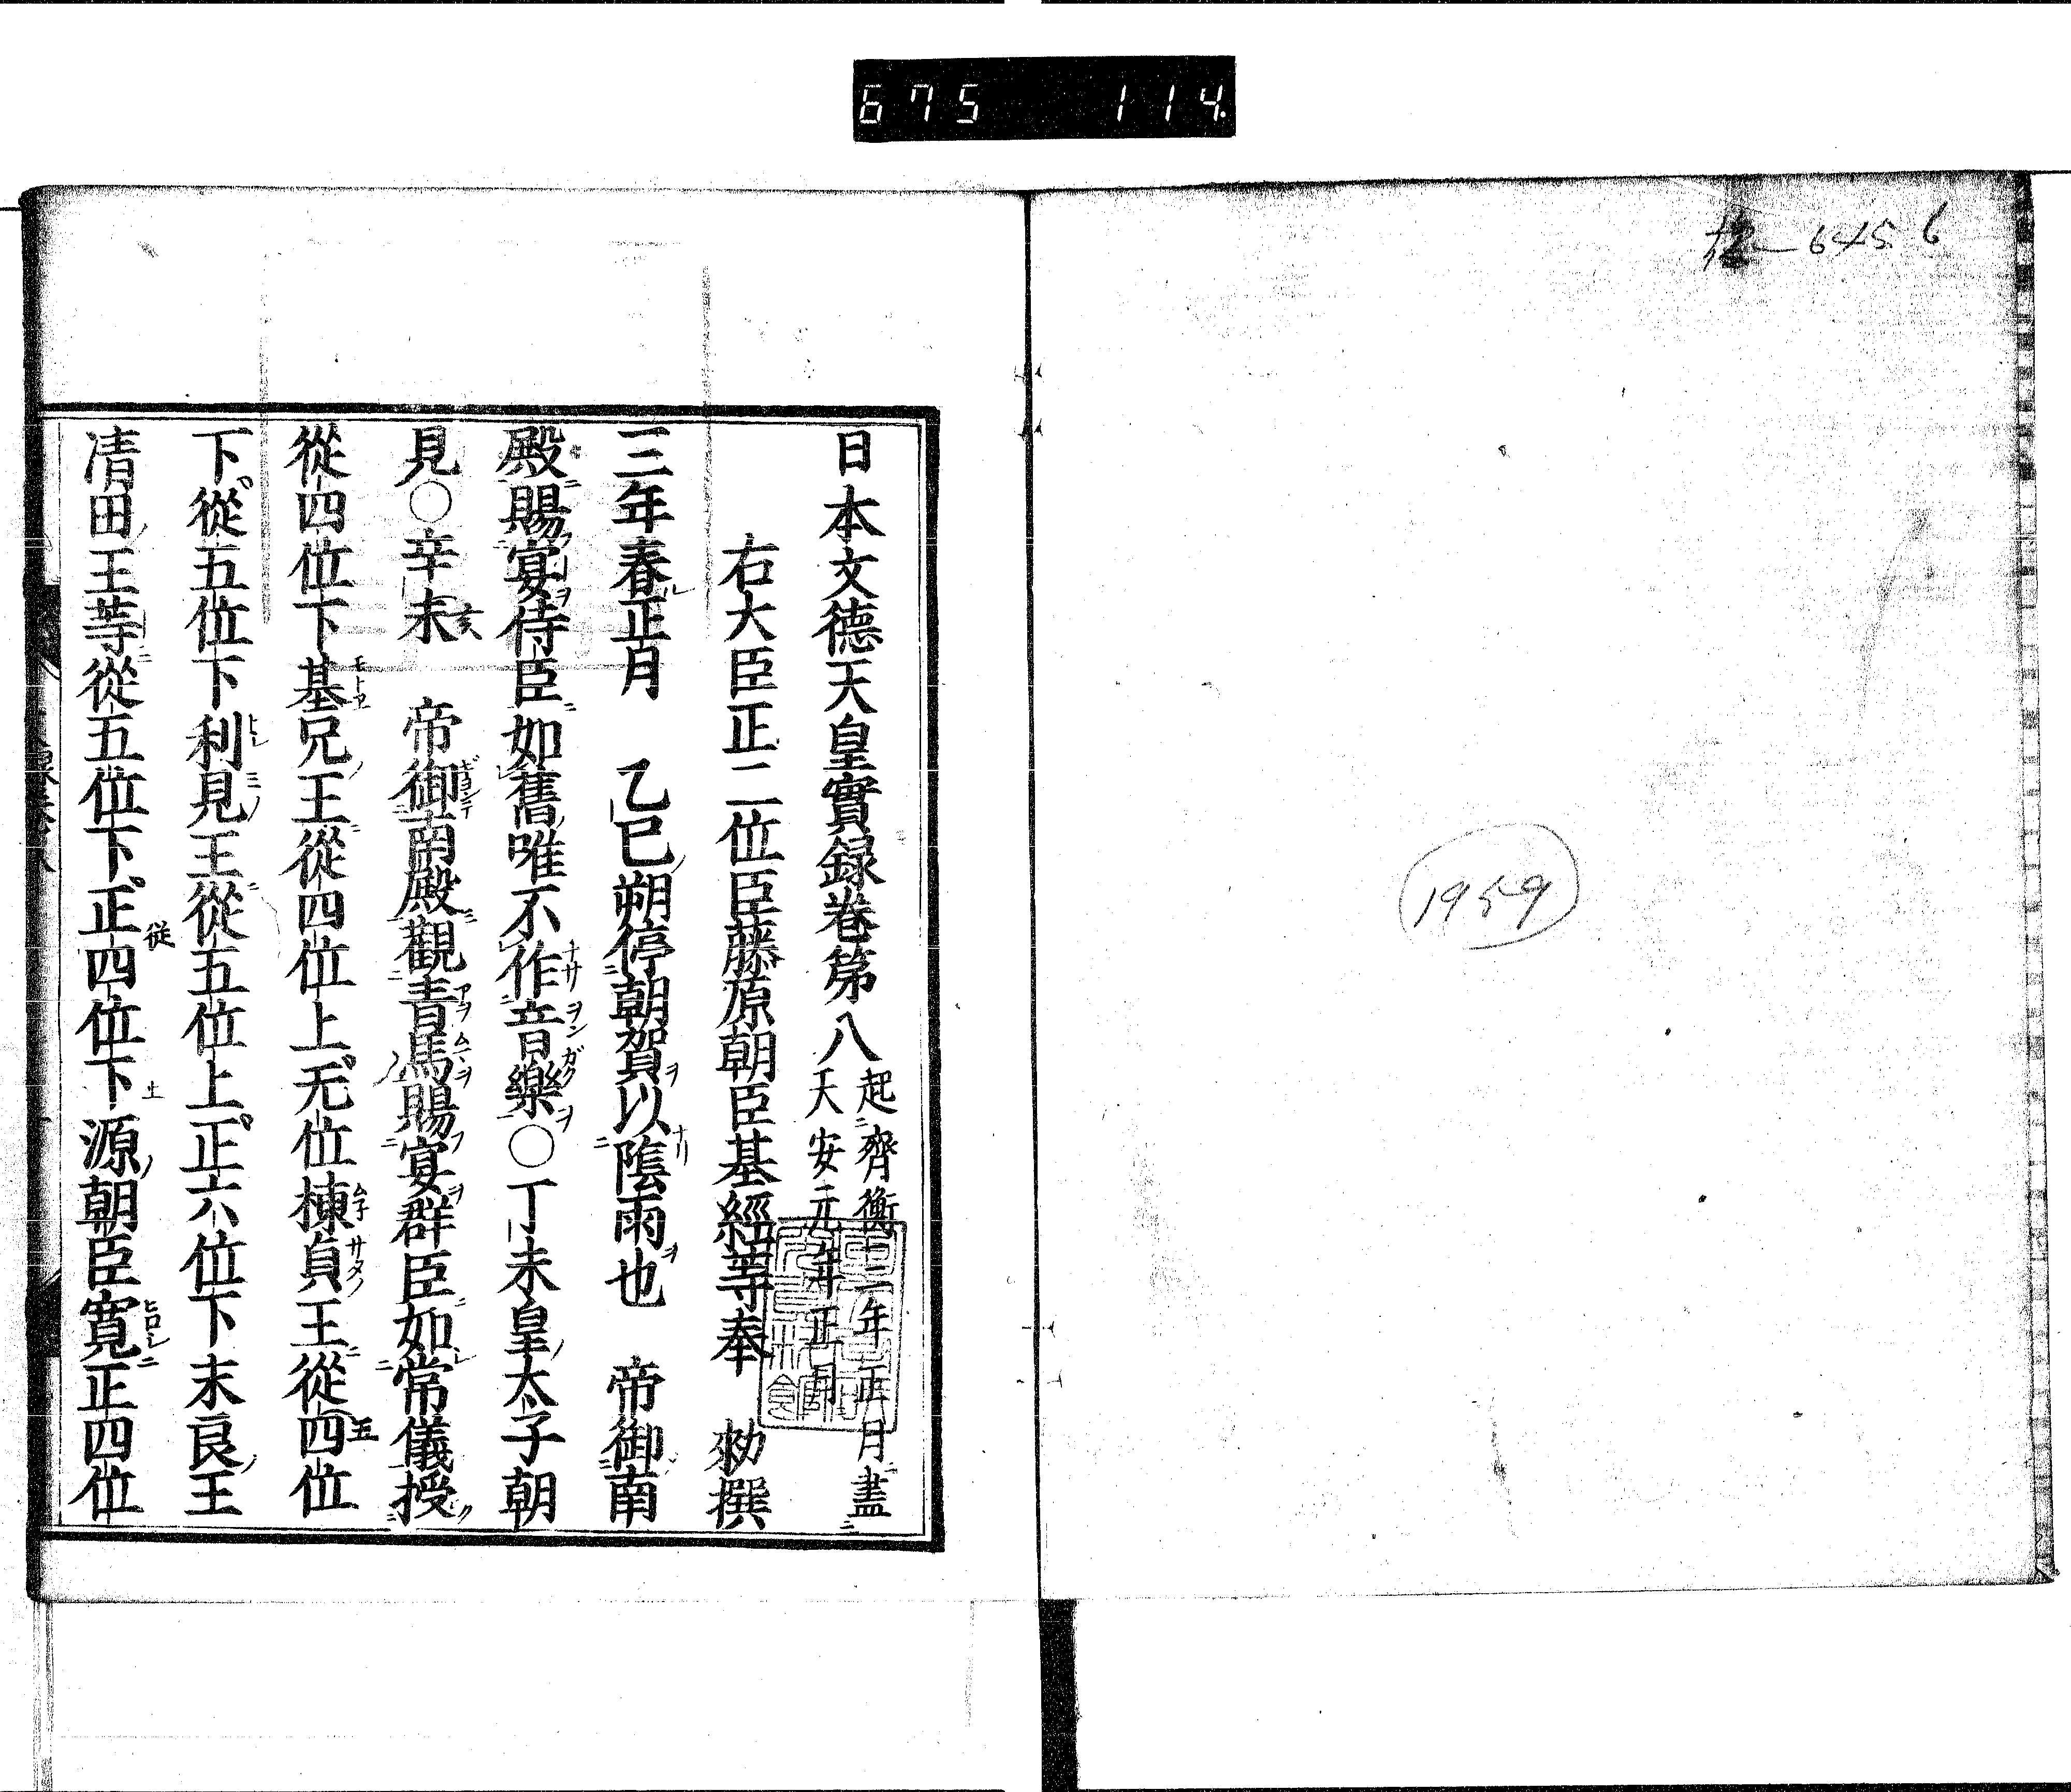 675 114
6456
1959
日本文德天皇實録卷第八 起齊衡三年正月盡天安元年正月
右大臣正二位臣藤原朝臣基經等奉 勑撰
三年春正月 乙巳朔停朝賀以陰雨也 帝御南
殿賜宴侍臣如舊唯不作音樂○丁未皇太子朝
見○辛未 帝御南殿觀青馬賜宴群臣如常儀授
從四位下基兄王從四位上无位棟貞王從四位
下從五位下利見王從五位上正六位下末良王
清田王等從五位下正四位下源朝臣寛正四位